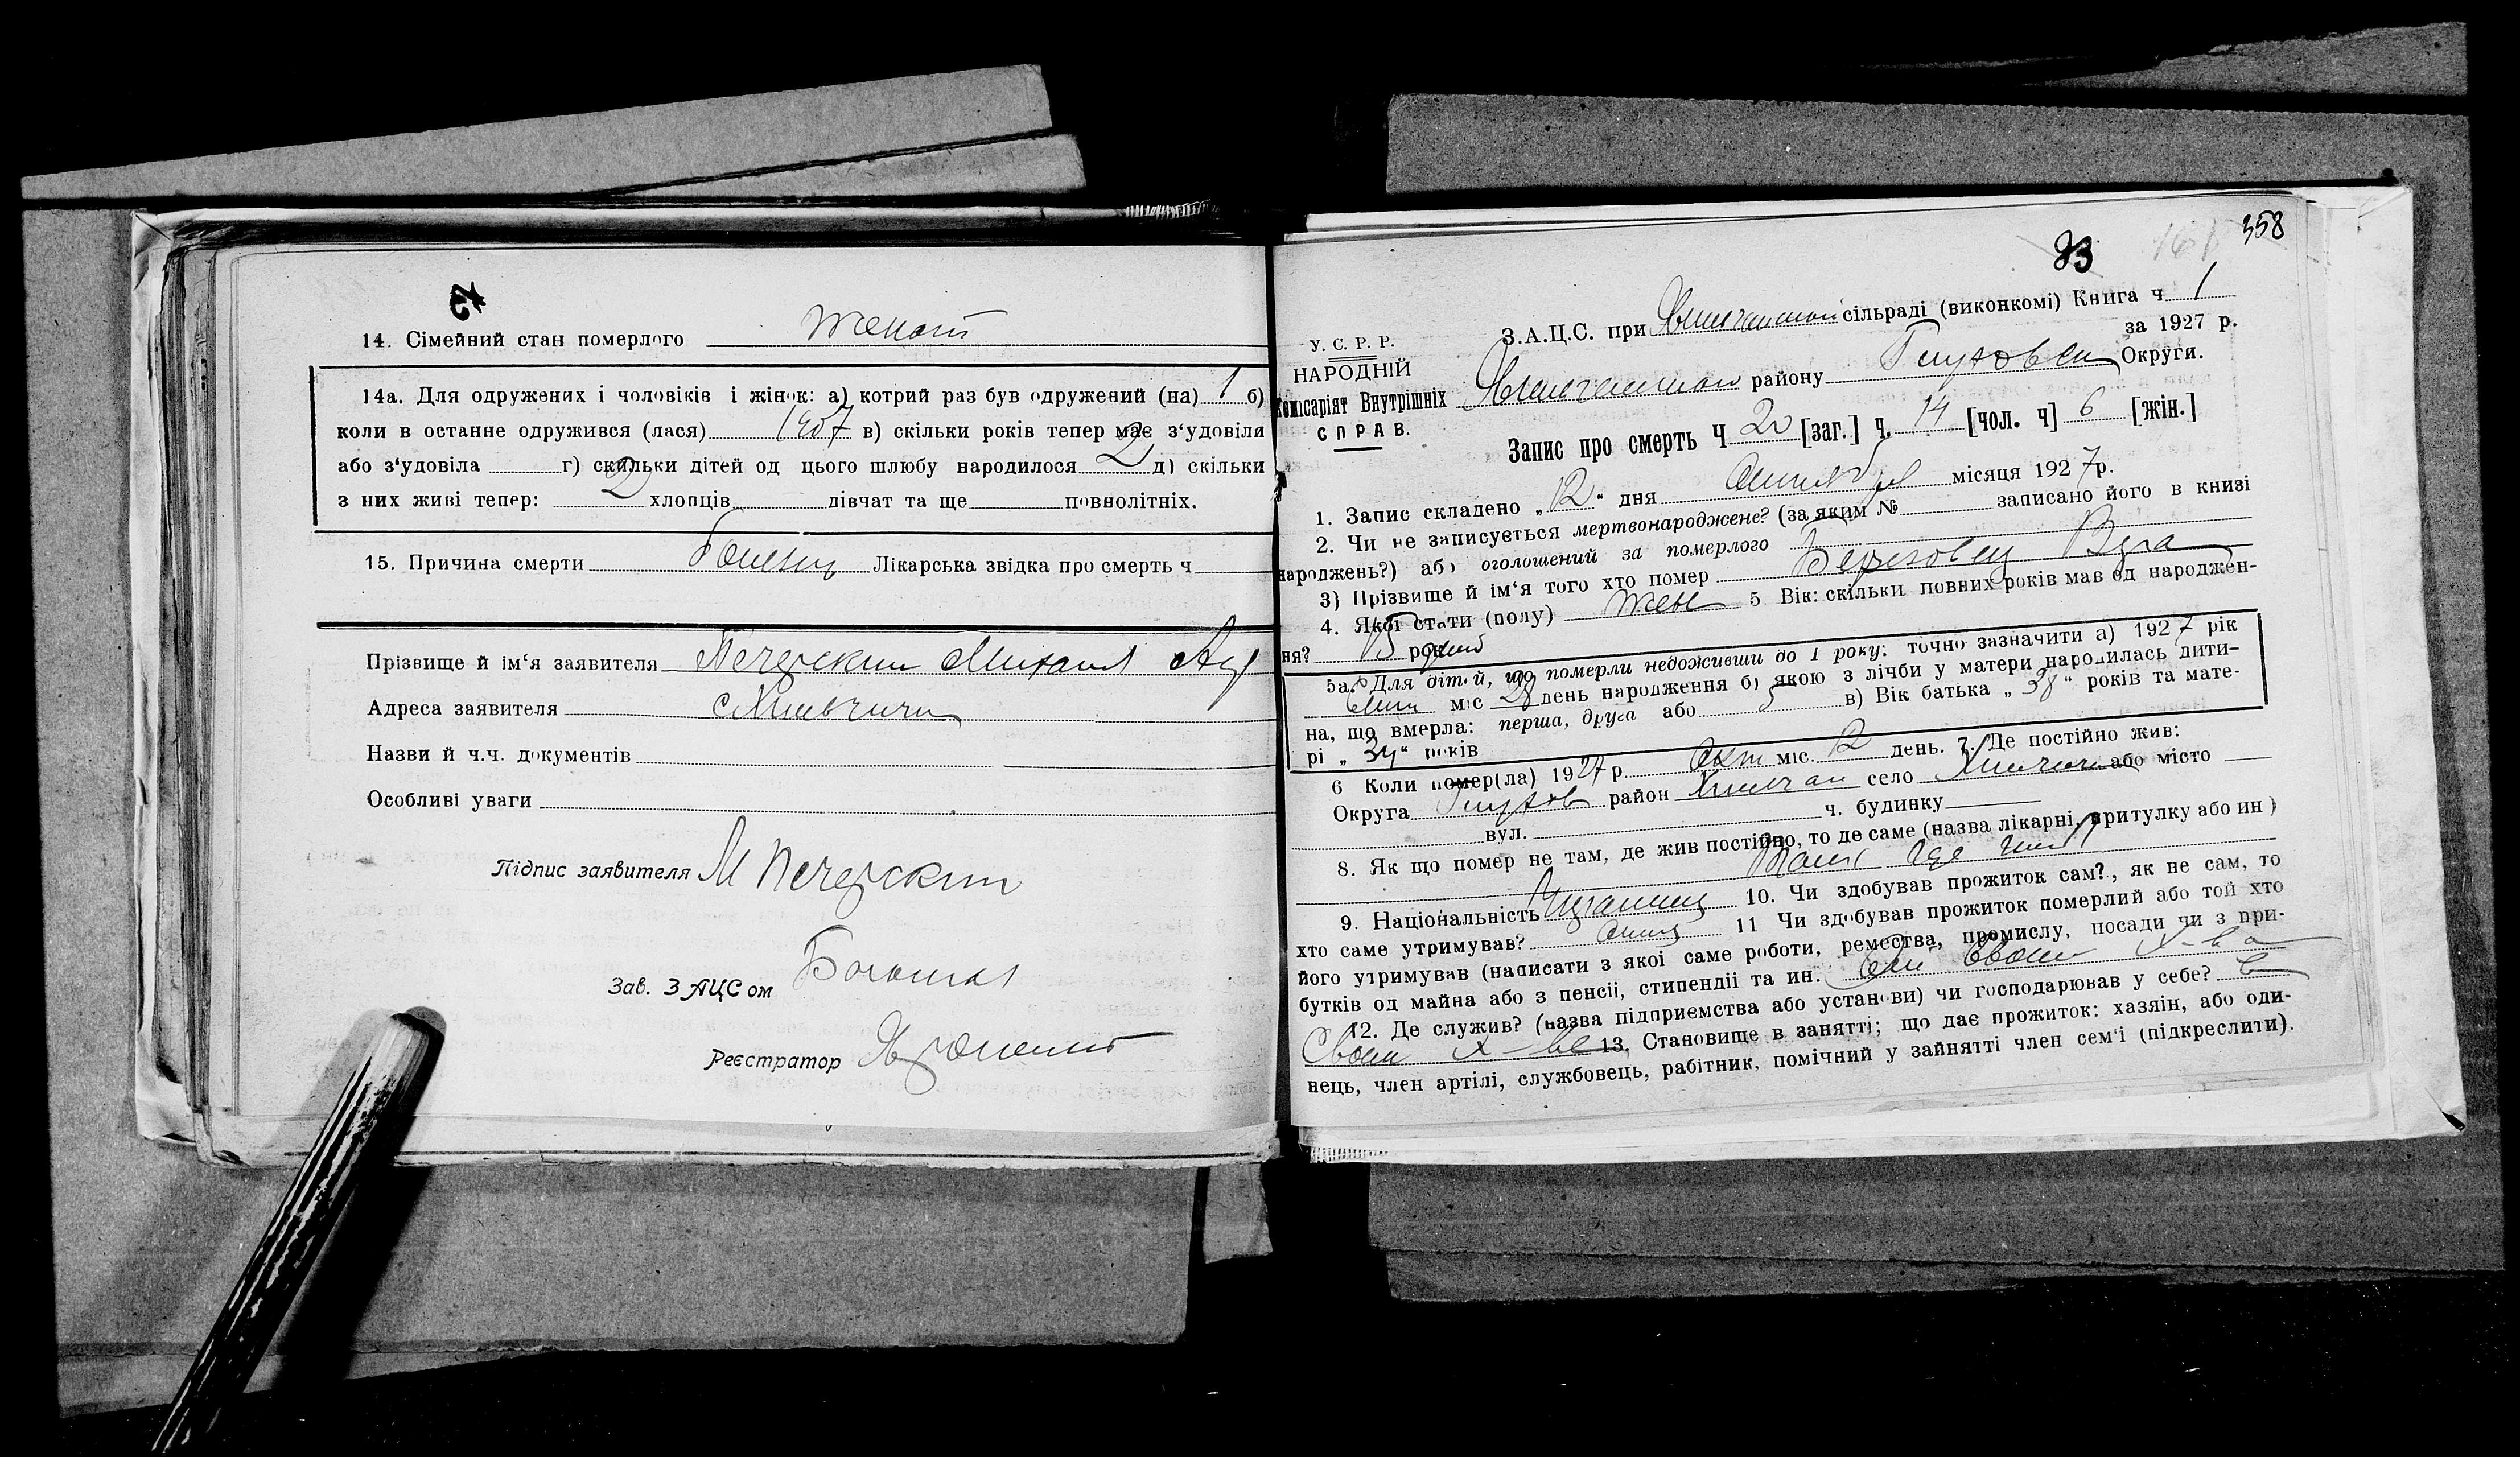 13
14. Сімейний стан померлого женат
14а. Для одружених і чоловіків і жінок: а) котрий раз був одружений (на) 1 б)
коли в останне одружився (лася) 1907 в) скільки років тепер має з'удовіли
або з'удовіла г) скильки дітей од цього шлюбу народилося 2 д) скільки
з них живі тепер: 2 хлопців дівчат та ще повнолітніх.
15. Причина смерти болезнь Лікарська звідка про смерть ч
Прізвище й ім'я заявителя Печерский Михаил
Адреса заявителя с Хильчичи
Назви й ч.ч. документів
Особливі уваги
Підпис заявителя М Печерский
Зав. ЗАЦСом
Реєстратор
358
83
У. С. Р. Р.
НАРОДНІЙ
Комісаріят Внутрішніх
СПРАВ.
З.А.Ц.С. при сільраді (виконкомі) Книга ч 1
за 1927 р.
району Глуховск Округи.
Запис про смерть Ч 20 [заг.] ч. 14 [чол. ч] 6 [жін.]
1. Запис складено „12" дня Октября місяця 1927 р.
2. Чи не записується мертвонароджене? (за яким № записано його в книзі
народжень?) або оголошений за померлого
3) Прізвище й ім'я того хто помер Березовец Вера
4. Якої стати (полу) жен 5 Вік: скільки повних років мав од народжен-
ня? 15 років дней
5а. Для дітей, що померли недоживши до 1 року: точно зазначити а) 1927 рік
міс 28 день народження б) якою з лічби у матери народилась дити-
на, що вмерла: перша, друга або 5 в) Вік батька „38" років та мате-
рі „34" років
6 Коли помер(ла) 1927 р. Окт міс. 12 день. 7. Де постійно жив:
Округа Глухов район Хильчан село Хильчичи або місто
вул. ч. будинку
8. Як що помер не там, де жив постійно, то де саме (назва лікарні, притулку або ин)
там где жил
9. Національність Украинец 10. Чи здобував прожиток сам?, як не сам, то
хто саме утримував? отец 11 Чи здобував прожиток померлий або той хто
його утримував (написати з якої саме роботи, ремества, промислу, посади чи з при-
бутків од майна або з пенсії, стипендії та ин. От своего х-ва
12. Де служив? (назва підприємства або установи) чи господарював у себе? в
своем х-ве 13. Становище в занятті; що дає прожиток: хазяін, або оди-
нець, член артілі, службовець, рабітник, помічний у зайнятті член сем'і (підкреслити).